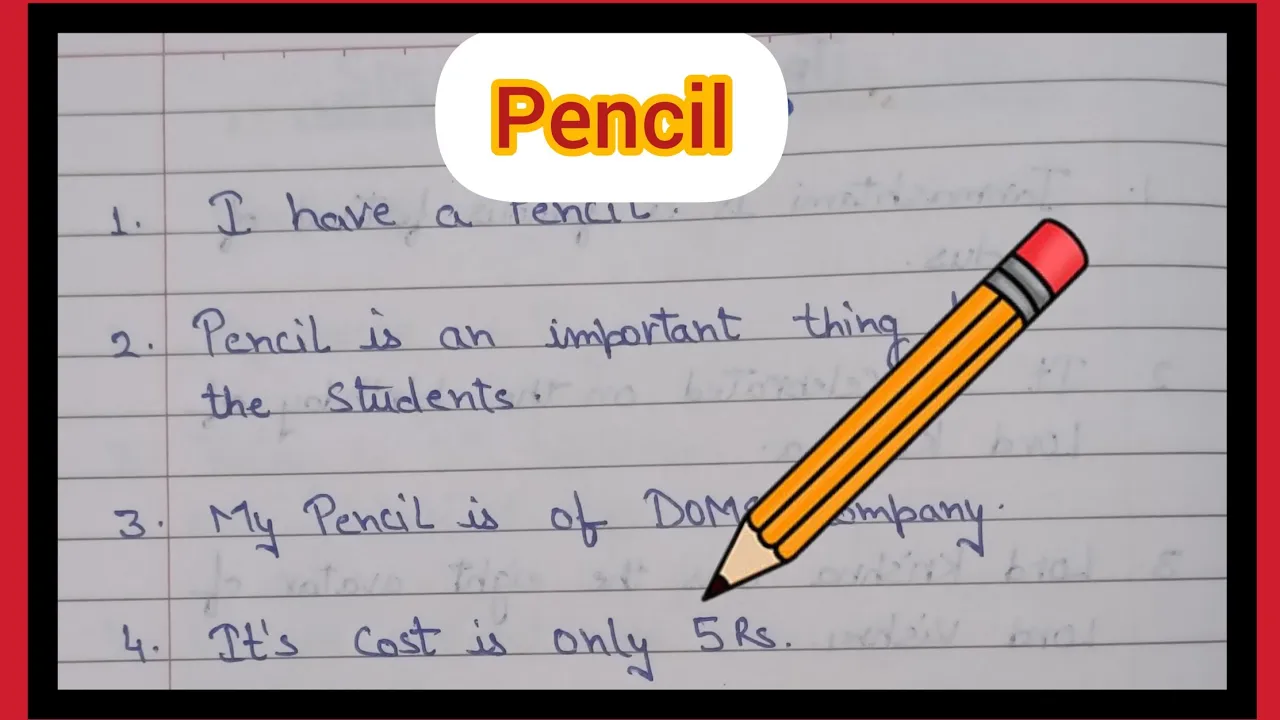 Pencil
1. I have a Pencil.
2. Pencil is an important thing
the students.
3. My Pencil is of DOMS Company.
4. It's cost is only 5 Rs.